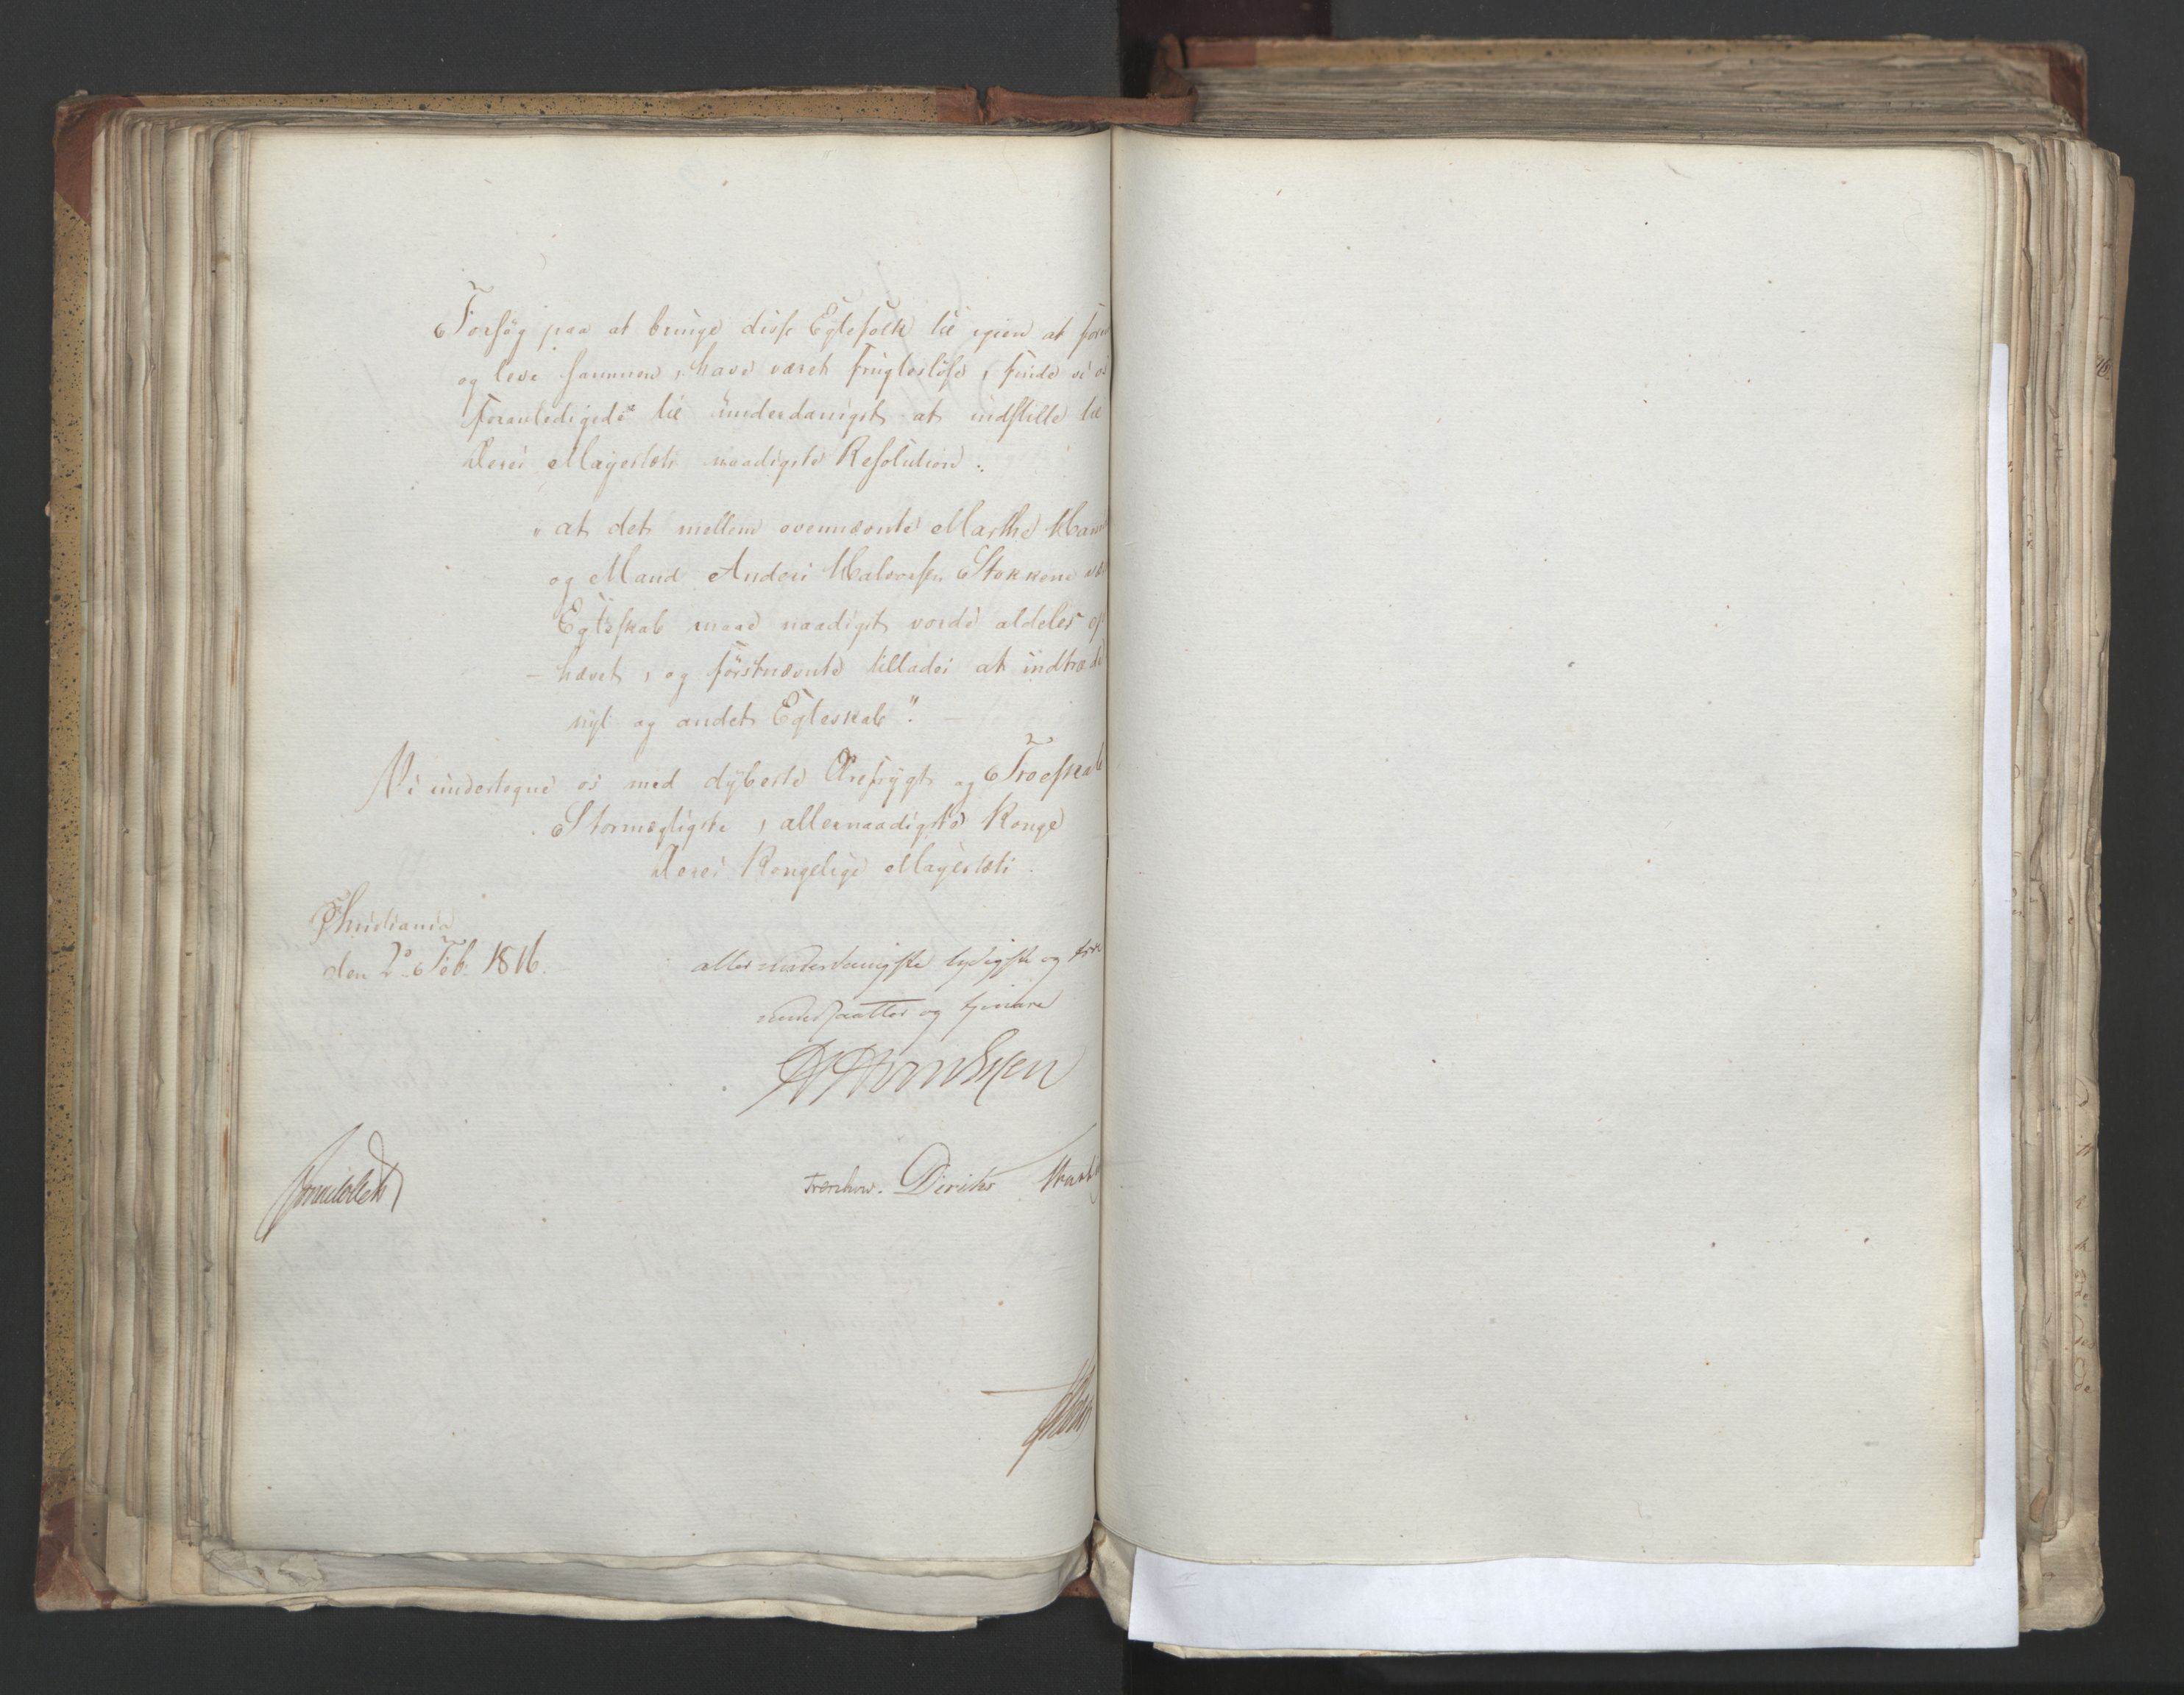 Forsøg paa at bringe disse Egtefolk til igien at
og leve sammen, have været frugtesløse, finde vi
foranledigede til underdanigst at indstille til
Deres Majestæts naadigste Resolution:
"at det mellem ovennævnte Marthe
og Mand Anders Halvorsen Stokkene
Egteskab maae naadigst vorde aldeles op
hævet, og førstnævnte tillades at indtræde
nyt og andet Egteskab".
Vi undertegne os med dybeste Ærefrygt og Troeskab
Stormægtigste, allernaadigste Konge
Deres Kongelige Majestæts
Christiania
den 2. Feb. 1816.
allerunderdanigste lydigste og
undersaatter og tjenere
Treschow. Diriks